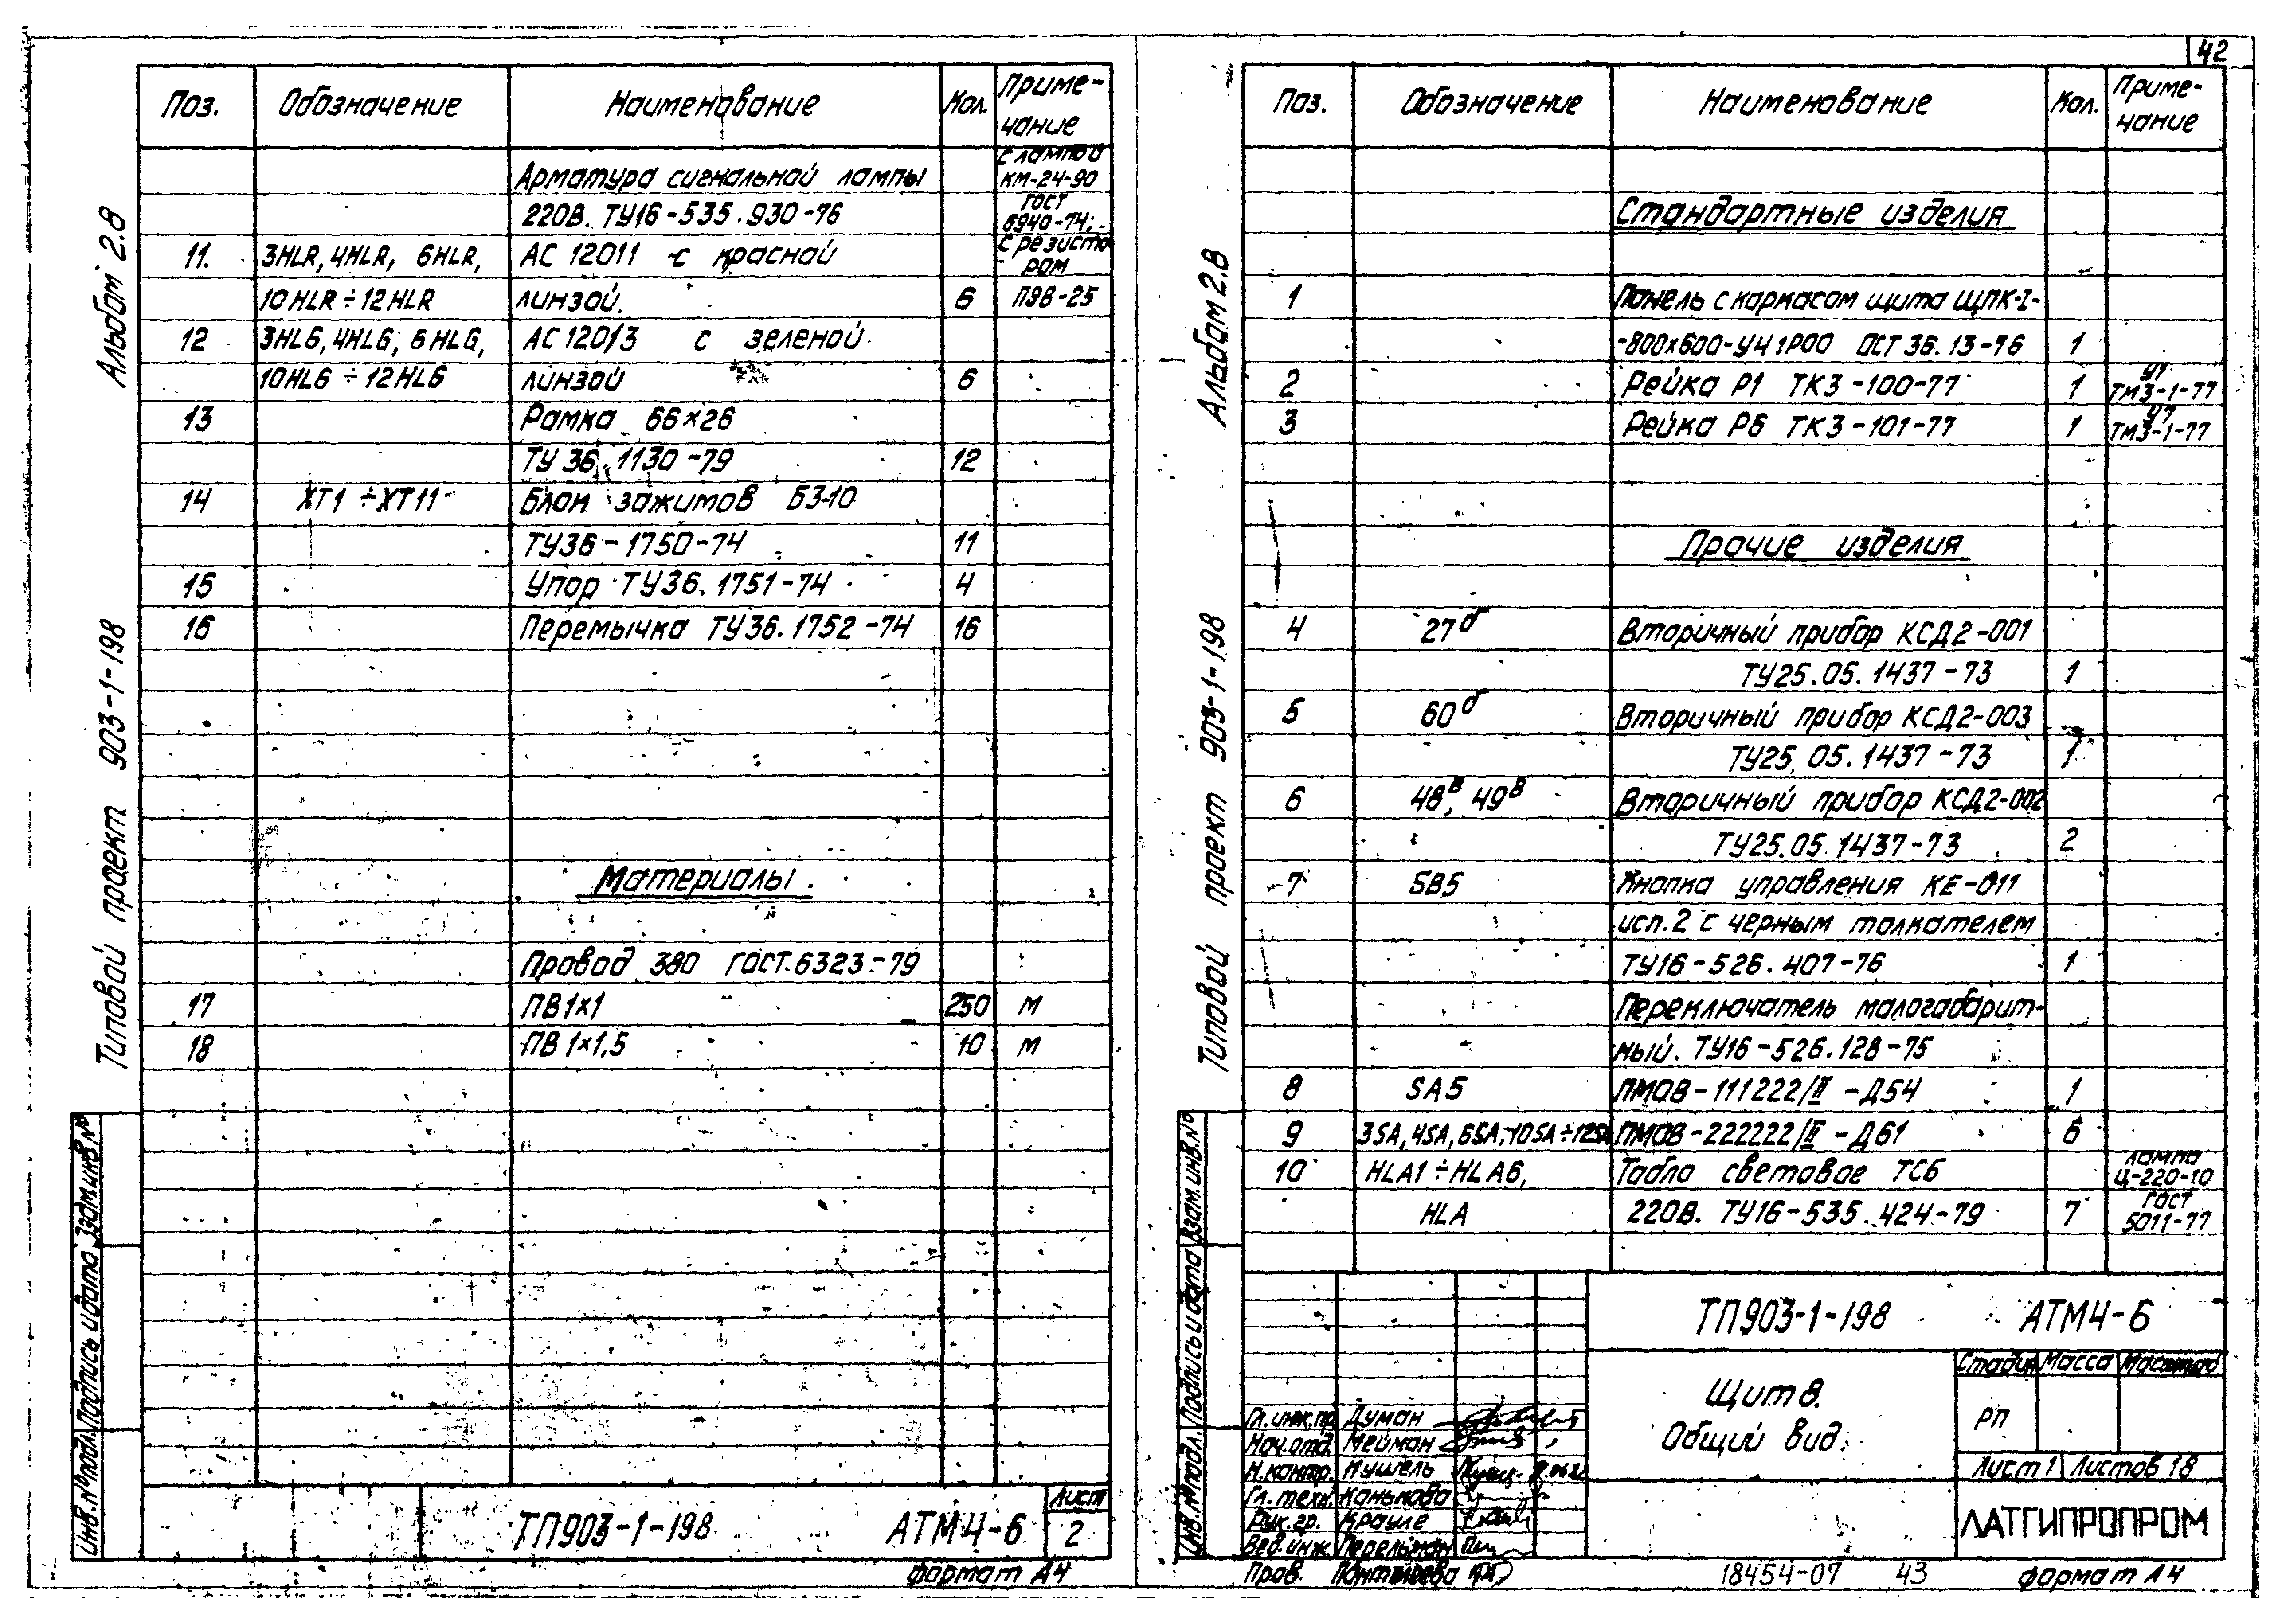 42
Альбом 2.8
Типовой проект 903-1-198
Поз. Обозначение Наименование Кол. Приме-
чание
Арматура сигнальной лампы с лампой
КМ-24-90
220В. ТУ16-535.930-76 ГОСТ
6940-74;
11. 3HLR, 4HLR, 6HLR, АС 12011 с красной с резисто
ром
10HLR÷12HLR линзой. 6 ПЭВ-25
12 3HLG, 4HLG, 6HLG, АС 12013 с зеленой
10HLG÷12HLG линзой 6
13 Рамка 66×26
ТУ 36.1130-79 12
14 XT1÷XT11 Блок зажимов БЗ-10
ТУ36-1750-74 11
15 Упор ТУ36.1751-74 4
16 Перемычка ТУ36.1752-74 16
Материалы.
Провод 380 ГОСТ.6323-79
17 ПВ1×1 250 м
18 ПВ 1×1,5 10 м
Инв.№подл. Подпись и дата Взам.инв.№
ТП903-1-198 АТМ4-6
Лист
2
формат А4
Альбом 2.8
Типовой проект 903-1-198
Поз. Обозначение Наименование Кол. Приме-
чание
Стандартные изделия
1 Панель с каркасом щита ЩПК-I-
-800×600-У4 IР00 ОСТ 36.13-76 1
2 Рейка Р1 ТК3-100-77 1 У1
ТМ3-1-77
3 Рейка Р6 ТК3-101-77 1 У7
ТМ3-1-77
Прочие изделия
4 27б Вторичный прибор КСД2-001
ТУ25.05.1437-73 1
5 60б Вторичный прибор КСД2-003
ТУ25.05.1437-73 1
6 48в, 49в Вторичный прибор КСД2-002
ТУ25.05.1437-73 2
7 SB5 Кнопка управления КЕ-011
исп.2 с черным толкателем
ТУ16-526.407-76 1
Переключатель малогабарит-
ный. ТУ16-526.128-75
8 SA5 ПМОВ-111222/II-Д54 1
9 3SA, 4SA, 6SA, 10SA÷12SA ПМОВ-222222/II-Д61 6
10 HLA1÷HLA6, Табло световое ТСБ лампа
Ц-220-10
HLA 220В. ТУ16-535.424-79 7 ГОСТ
5011-77
Инв.№подл. Подпись и дата Взам.инв.№
ТП903-1-198 АТМ4-6
Щит 8.
Общий вид.
Стадия Масса Масштаб
РП
Лист 1 Листов 18
ЛАТГИПРОПРОМ
Гл.инж.пр. Думан
Нач.отд. Мейман
Н.контр. Мушель
Гл.техн. Канькова
Рук.гр. Крауле
Вед.инж. Перельман
Пров.
18454-07 43 формат А4